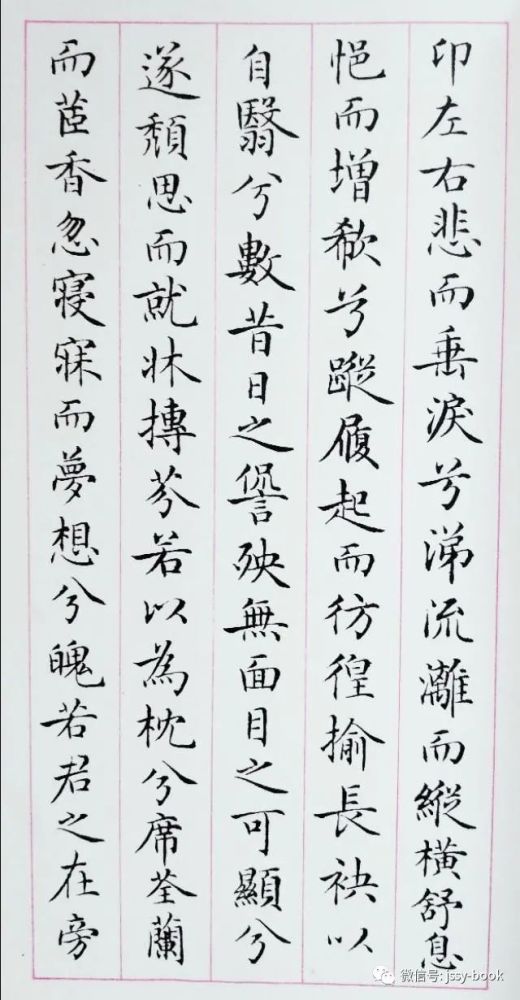 卬左右悲而垂淚兮涕流灕而縱橫舒息
悒而增欷兮蹝履起而彷徨揄長袂以
自翳兮數昔日之諐殃無面目之可顯兮
遂頹思而就牀摶芬若以為枕兮席荃蘭
而茝香忽寑寐而夢想兮魄若君之在旁
微信号: jssy-book